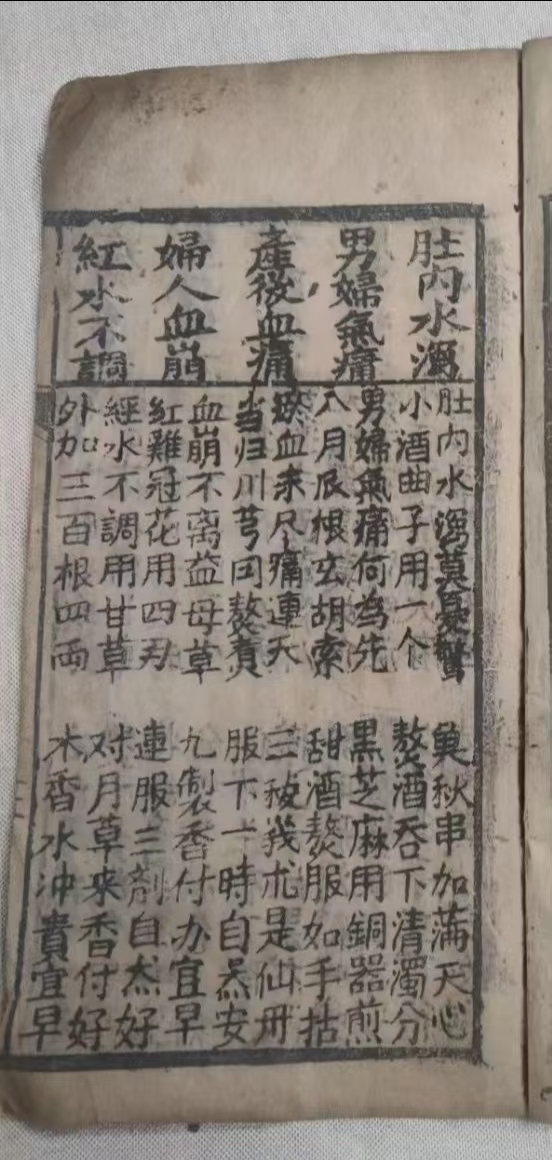 肚内水瀉
男婦氣痛
產後血痛
婦人血崩
紅水不調
肚内水瀉莫 臭秋串加滿天心
小酒曲子用一个 熬酒吞下清濁分
男婦氣痛何為先 黑芝麻用銅器煎
八月辰根玄胡索 甜酒熬服如手拈
瘀血未尽痛連天 三稜莪朮是仙丹
当归川芎田熬煮 服下一時自然安
血崩不离益母草 九製香付办宜早
紅雞冠花用四刄 連服三剂自然好
經水不調用甘草 对月草来香付好
外加三百根四兩 木香水沖貴宜早